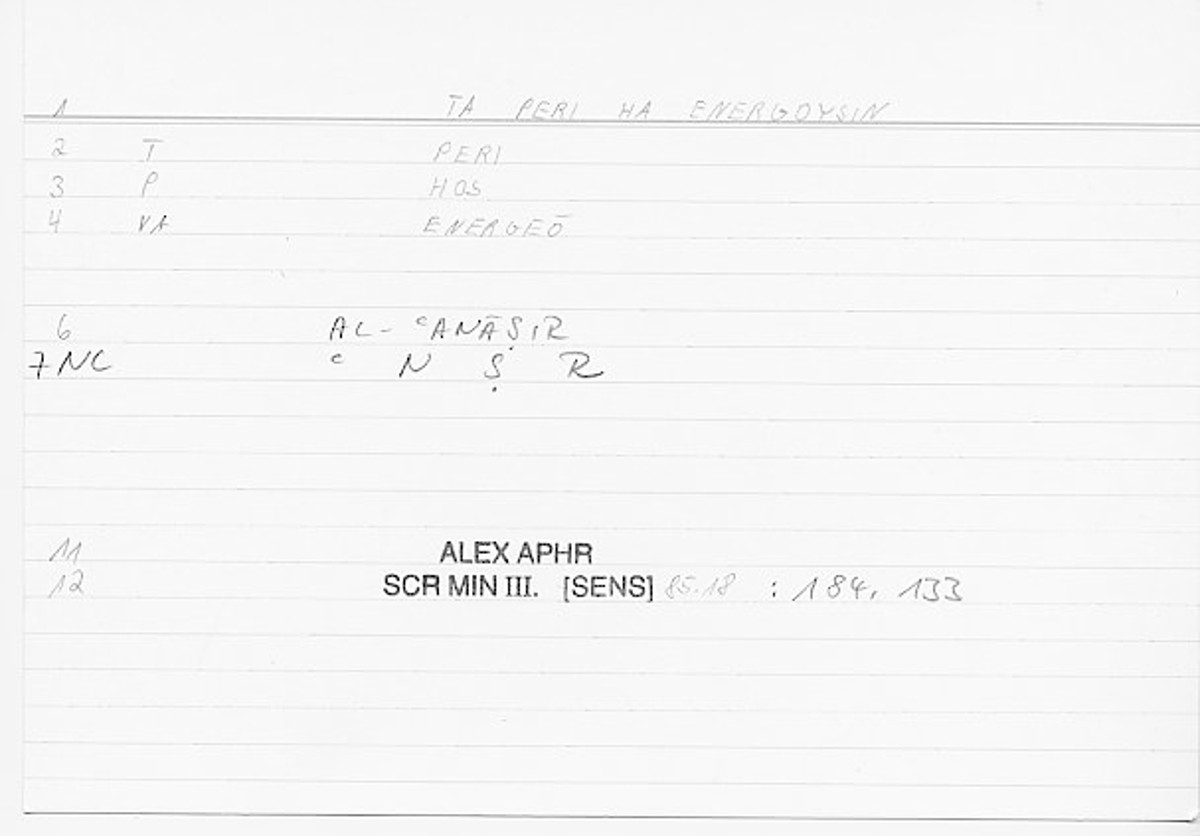 1 TA PERI HA ENERGOYSIN
2 T PERI
3 P HOS
4 VA ENERGEŌ
6 AL-ʿANĀṢIR
7 NC ʿ N Ṣ R
11 ALEX APHR
12 SCR MIN III. [SENS] 85.18 : 184, 133